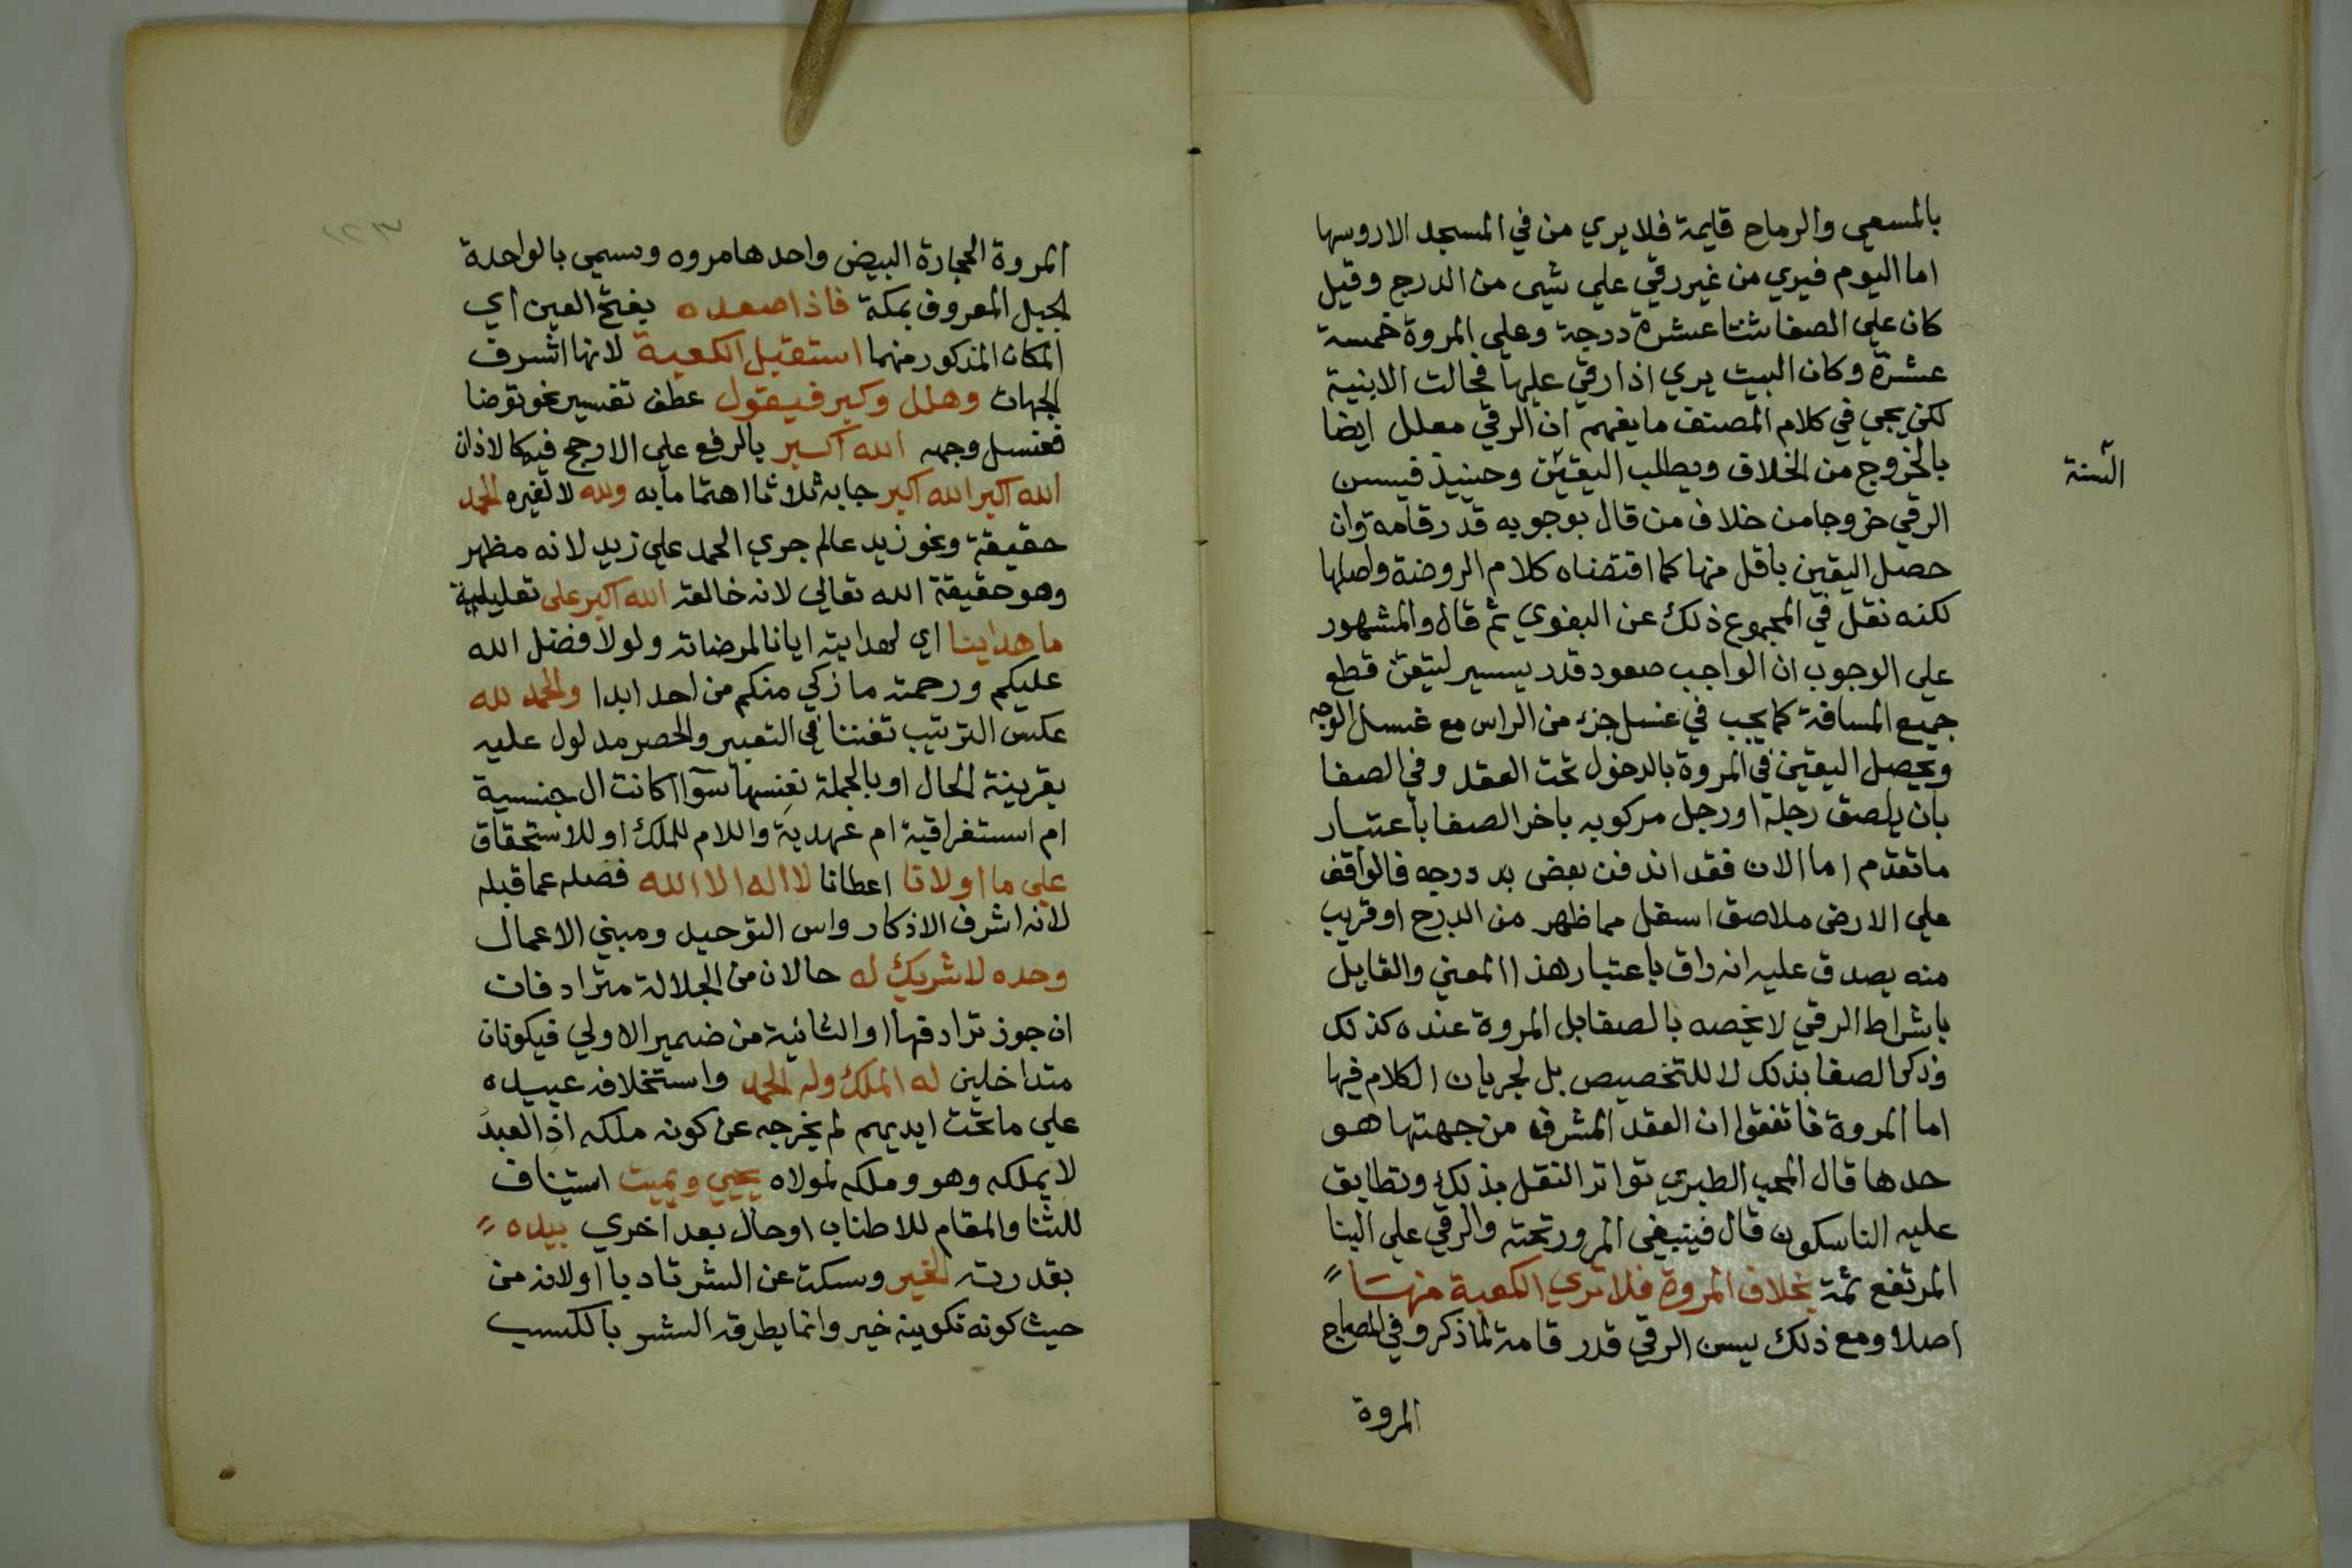 بالمسعى والرماح قايمة فلا يري من في المسجد الا روسها
اما اليوم فيري من غير رقي علي شيى من الدرج وقيل
كان علي الصفا ثنتا عشرة درجة وعلي المروة خمسة
عشرة وكان البيت يري اذا رقي عليها فحالت الابنية
لكن يجي في كلام المصنف ما يفهم ان الرقي معلل ايضا
بالخروج من الخلاف ويطلب اليقين وحينيذ فيسن
السنة
الرقي خروجا من خلاف من قال بوجوبه قدر قامة وان
حصل اليقين باقل منها كما اقتضاه كلام الروضة واصلها
لكنه نقل في المجموع ذلك عن البغوي ثم قال والمشهور
علي الوجوب ان الواجب صعود قدر يسير ليتقن قطع
جميع المسافة كما يجب في غسل جزء من الراس مع غسل الوجه
ويحصل اليقين في المروة بالدخول تحت العقد وفي الصفا
بان يلصق رجله او رجل مركوبه باخر الصفا باعتبار
ما تقدم اما الان فقد اندفن بعض درجه فالواقف
علي الارض ملاصق اسفل مما ظهر من الدرج او قريب
منه يصدق عليه انه راق باعتبار هذا المعني والقايل
باشراط الرقي لا يخصه بالصفا بل المروة عنده كذلك
وذكر الصفا بذلك لا للتخصيص بل لجريان الكلام فيها
اما المروة فاتفقوا ان العقد المشرف من جهتها هو
حدها قال المحب الطبري تواتر النقل بذلك وتطابق
عليه الناسكون قال فينبغي المرور تحته والرقي علي البنا
المرتفع ثمة بخلاف المروة فلا تري الكعبة منها
اصلا ومع ذلك يسن الرقي قدر قامة لما ذكر وفي المصباح
المروة
المروة الحجارة البيض واحدها مروه وسمي بالواحدة
الجبل المعروف بمكة فاذا صعده بفتح العين اي
المكان المذكور منهما استقبل الكعبة لانها اشرف
الجهات وهلل وكبر فيقول عطف تفسير نحو توضا
فغسل وجهه الله اكبر بالرفع علي الارجح فيه كالاذان
الله اكبر الله اكبر جا به ثلاثا اهتماما به ولله لا لغيره الحمد
حقيقة ونحو زيد عالم جري الحمد علي زيد لانه مظهر
وهو حقيقة الله تعالي لانه خالقه الله اكبر على تعليلية
ما هدانا اي لهدايته ايانا لمرضاته ولولا فضل الله
عليكم ورحمته ما زكي منكم من احد ابدا والحمد لله
عكس الترتيب تفننا في التعبير والحصر مدلول عليه
بقرينة الحال او بالجملة نفسها سوآ اكانت ال جنسية
ام استغراقية ام عهدية واللام للملك او للاستحقاق
علي ما اولانا اعطانا لا اله الا الله فصله عما قبله
لانه اشرف الاذكار واس التوحيد ومبني الاعمال
وحده لا شريك له حالان من الجلالة مترادفان
ان جوز ترادفها او الثانية من ضمير الاولي فيكونان
متداخلين له الملك وله الحمد واستخلافه عبيده
علي ما تحت ايديهم لم يخرجه عن كونه ملكه اذ العبد
لا يملكه وهو وملكه لمولاه يحيي ويميت استيناف
للثنا والمقام للاطناب او حال بعد اخري بيده
بقدرته الخير وسكت عن الشر تادبا او لانه من
حيث كونه تكوينه خير وانما يطرقه الشر بالكسب